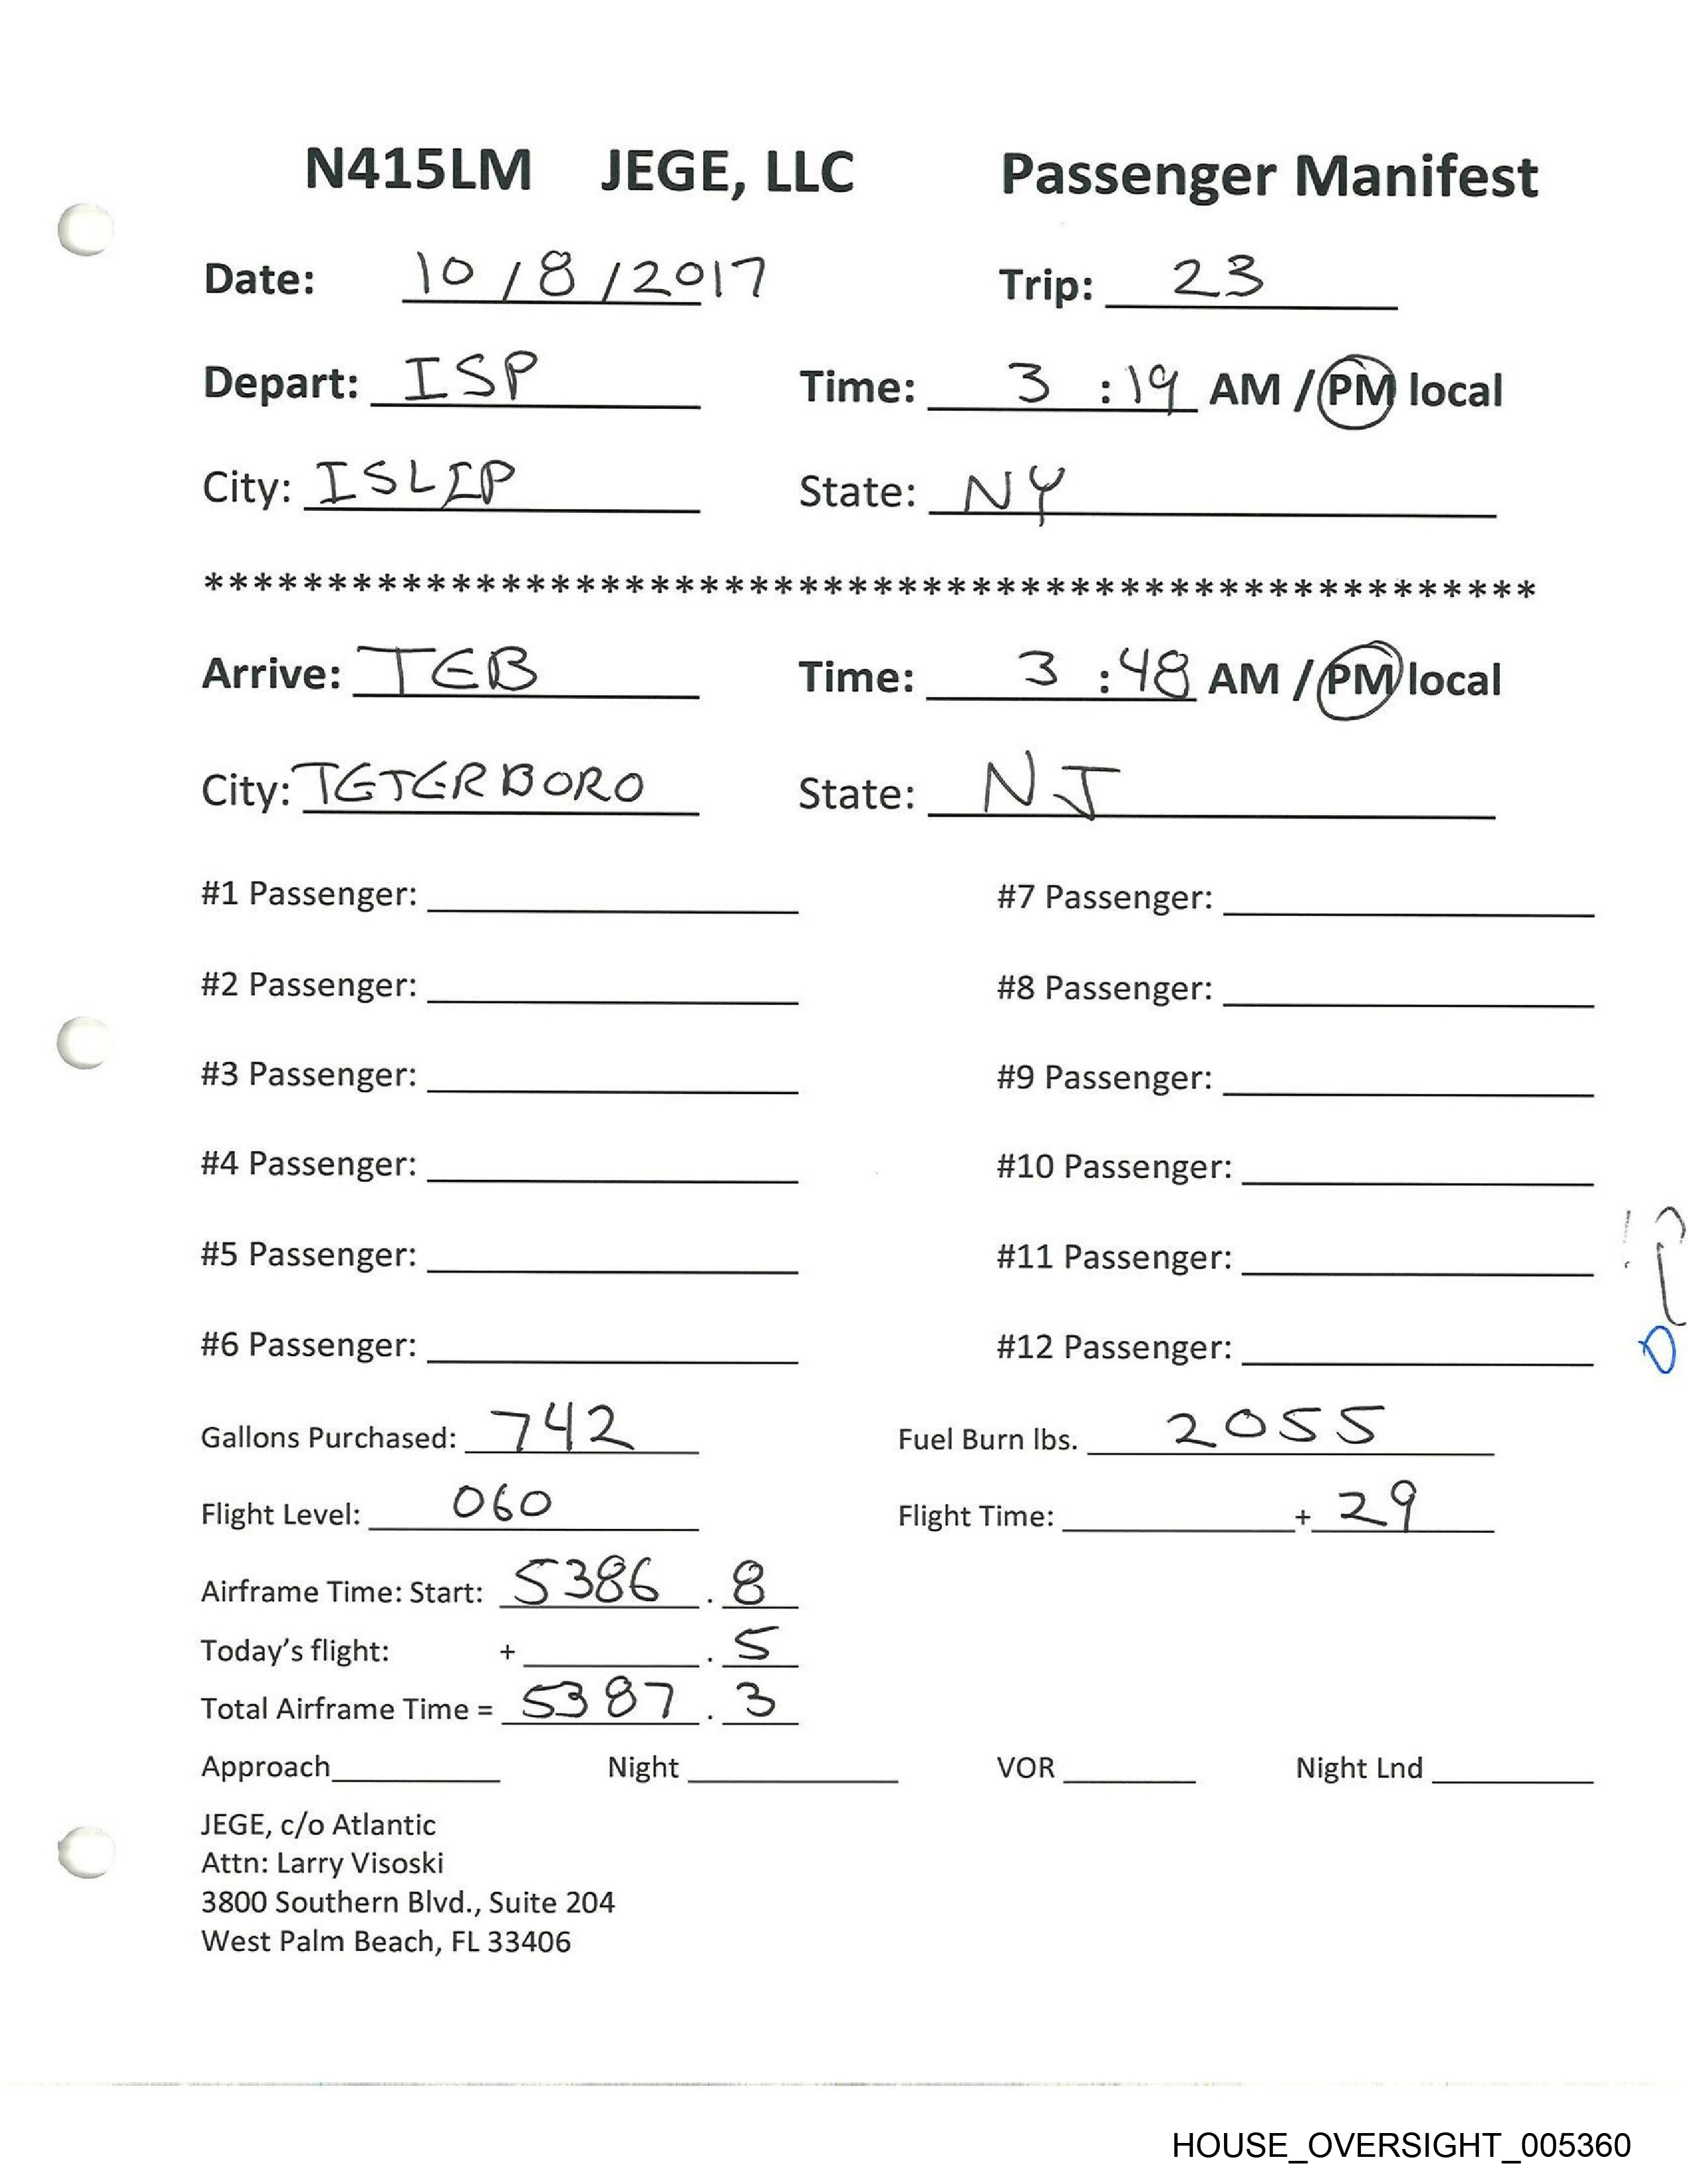 N415LM JEGE, LLC Passenger Manifest
Date: 10 / 8 / 2017 Trip: 23
Depart: ISP Time: 3 : 19 AM / PM local
City: ISLIP State: NY
******************************************************
Arrive: TEB Time: 3 : 48 AM / PM local
City: TETERBORO State: NJ
#1 Passenger: #7 Passenger:
#2 Passenger: #8 Passenger:
#3 Passenger: #9 Passenger:
#4 Passenger: #10 Passenger:
#5 Passenger: #11 Passenger:
#6 Passenger: #12 Passenger:
Gallons Purchased: 742 Fuel Burn lbs. 2055
Flight Level: 060 Flight Time: + 29
Airframe Time: Start: 5386 . 8
Today's flight: + . 5
Total Airframe Time = 5387 . 3
Approach Night VOR Night Lnd
JEGE, c/o Atlantic
Attn: Larry Visoski
3800 Southern Blvd., Suite 204
West Palm Beach, FL 33406
HOUSE_OVERSIGHT_005360